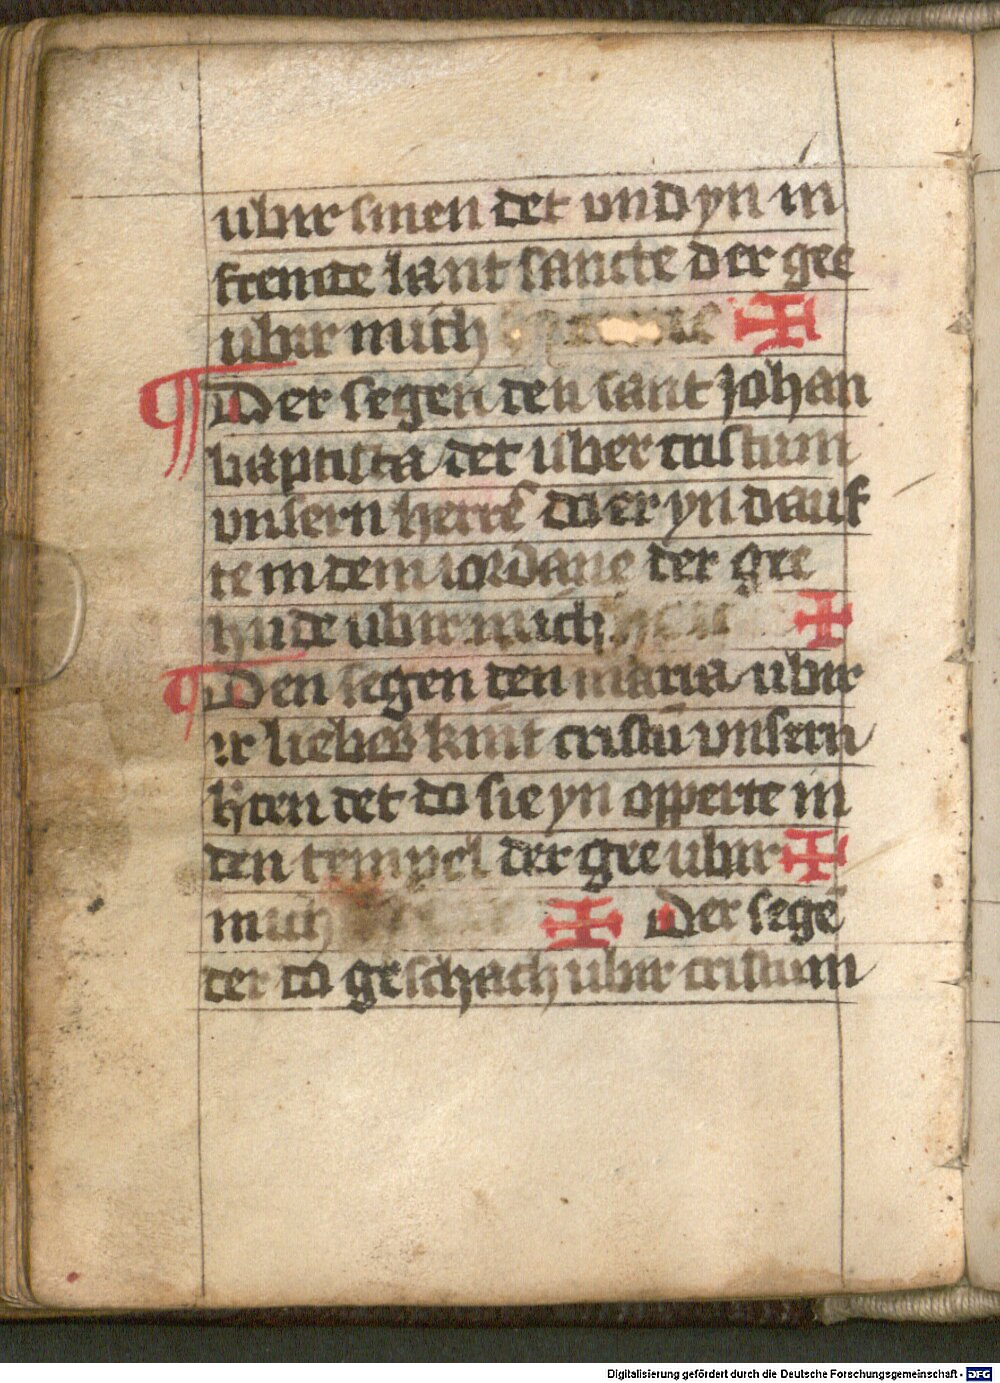 ubir sinen det vnd yn in
fremde lant sancte der gee
ubir mich ✠
¶ Der segen den sant Johan
baptista det uber cristum
vnsern herrē do er yn dauf
te in dem iordane der gee
hude ubir mich ✠
¶ Den segen den maria ubir
ir liebes kint cristū vnsern
h̄ren det do sie yn opperte in
den tempel der gee ubir ✠
mich ✠ Der segē
der do geschach ubir cristum
Digitalisierung gefördert durch die Deutsche Forschungsgemeinschaft - DFG